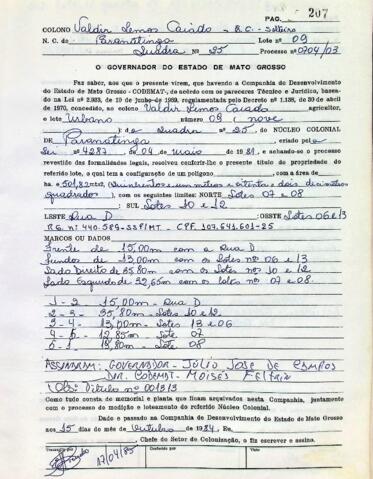 PAG. 207
COLONO Valdir Lemos Caiado - R.C - Solteiro
N. C. de Paranatinga Lote nº 09
Quadra Nº 25 Processo nº 0704/03
O GOVERNADOR DO ESTADO DE MATO GROSSO
Faz saber, aos que o presente virem, que havendo a Companhia de Desenvolvimento
do Estado de Mato Grosso - CODEMAT-, de acordo com os pareceres Técnico e Jurídico, basea-
do na Lei nº 2.933, de 19 de junho de 1969, regulamentada pelo Decreto nº 1.138, de 30 de abril
de 1970, concedido, ao colono Valdir Lemos Caiado agricultor,
o lote Urbano número 09 ( nove
) da Quadra nº 25, do NÚCLEO COLONIAL
DE Paranatinga criado pela
Lei 4287 de 04 de maio de 1981, e achando-se o processo
revestido das formalidades legais, resolveu conferir-lhe o presente título de propriedade do
referido lote, o qual tem a configuração de um polígono, com a área de
ha e 501,82m² (Quinhentos e um metros e oitenta e dois decimetros
quadrados), com os seguintes limites: NORTE Lotes 07 e 08
SUL Lotes 10 e 12
LESTE Rua D OESTE Lotes 06 e 13
R.G. nº 440.589-SSP/MT - CPF. 107.641.601-25
MARCOS OU DADOS
Frente de 15,00m com a Rua D
Fundos de 13,00m com os Lotes nºs 06 e 13
Lado Direito de 35,80m com os Lotes nºs 10 e 12
Lado Esquerdo de 32,65m com os Lotes nºs 07 e 08.
1 - 2 15,00m - Rua D
2 - 3 - 35,80m - Lotes 10 e 12
3 - 4 - 13,00m - Lotes 13 e 06
4 - 5 - 12,85m - Lote 07
5 - 1 - 19,80m - Lote 08
ASSINARAM: GOVERNADOR - JÚLIO JOSÉ DE CAMPOS
DIR. CODEMAT - MOISÉS FELTRIN
Obs: Título nº 001313
Como tudo consta do memorial e planta que ficam arquivados nesta Companhia, juntamente
com o processo de medição e loteamento do referido Núcleo Colonial.
Dado e passado na Companhia de Desenvolvimento do Estado de Mato Grosso
aos 15 dias do mês de outubro de 1984. Eu,
Chefe do Setor de Colonização, o fiz escrever e assino.
Transcrito por
Conferido por
Visto
17/04/85